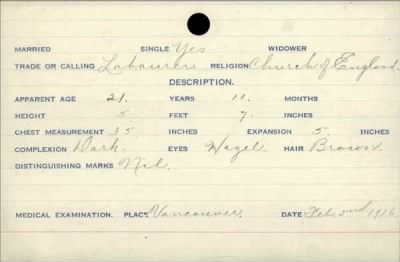 MARRIED SINGLE Yes WIDOWER
TRADE OR CALLING Labourer RELIGION Church of England.
DESCRIPTION.
APPARENT AGE 21. YEARS 10. MONTHS
HEIGHT 5. FEET 7. INCHES
CHEST MEASUREMENT 35 INCHES EXPANSION 5. INCHES
COMPLEXION Dark. EYES Hazel. HAIR Brown.
DISTINGUISHING MARKS Nil.
MEDICAL EXAMINATION. PLACE Vancouver. DATE Feb. 2nd 1916.